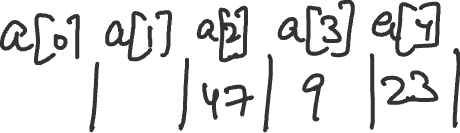 a[0] a[1] a[2] a[3] a[4]
| | 47 | 9 | 23 |